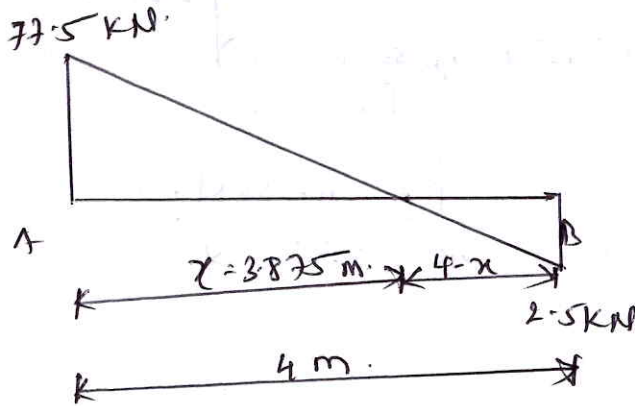 77.5 KN.
A
B
x = 3.875 m.
4-x
2.5KN
4 m.